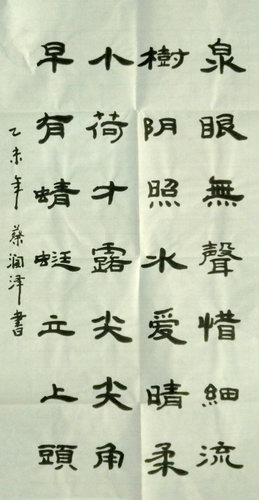 泉眼無聲惜細流
樹阴照水爱晴柔
小荷才露尖尖角
早有蜻蜓立上頭
乙未年 蔡润泽書